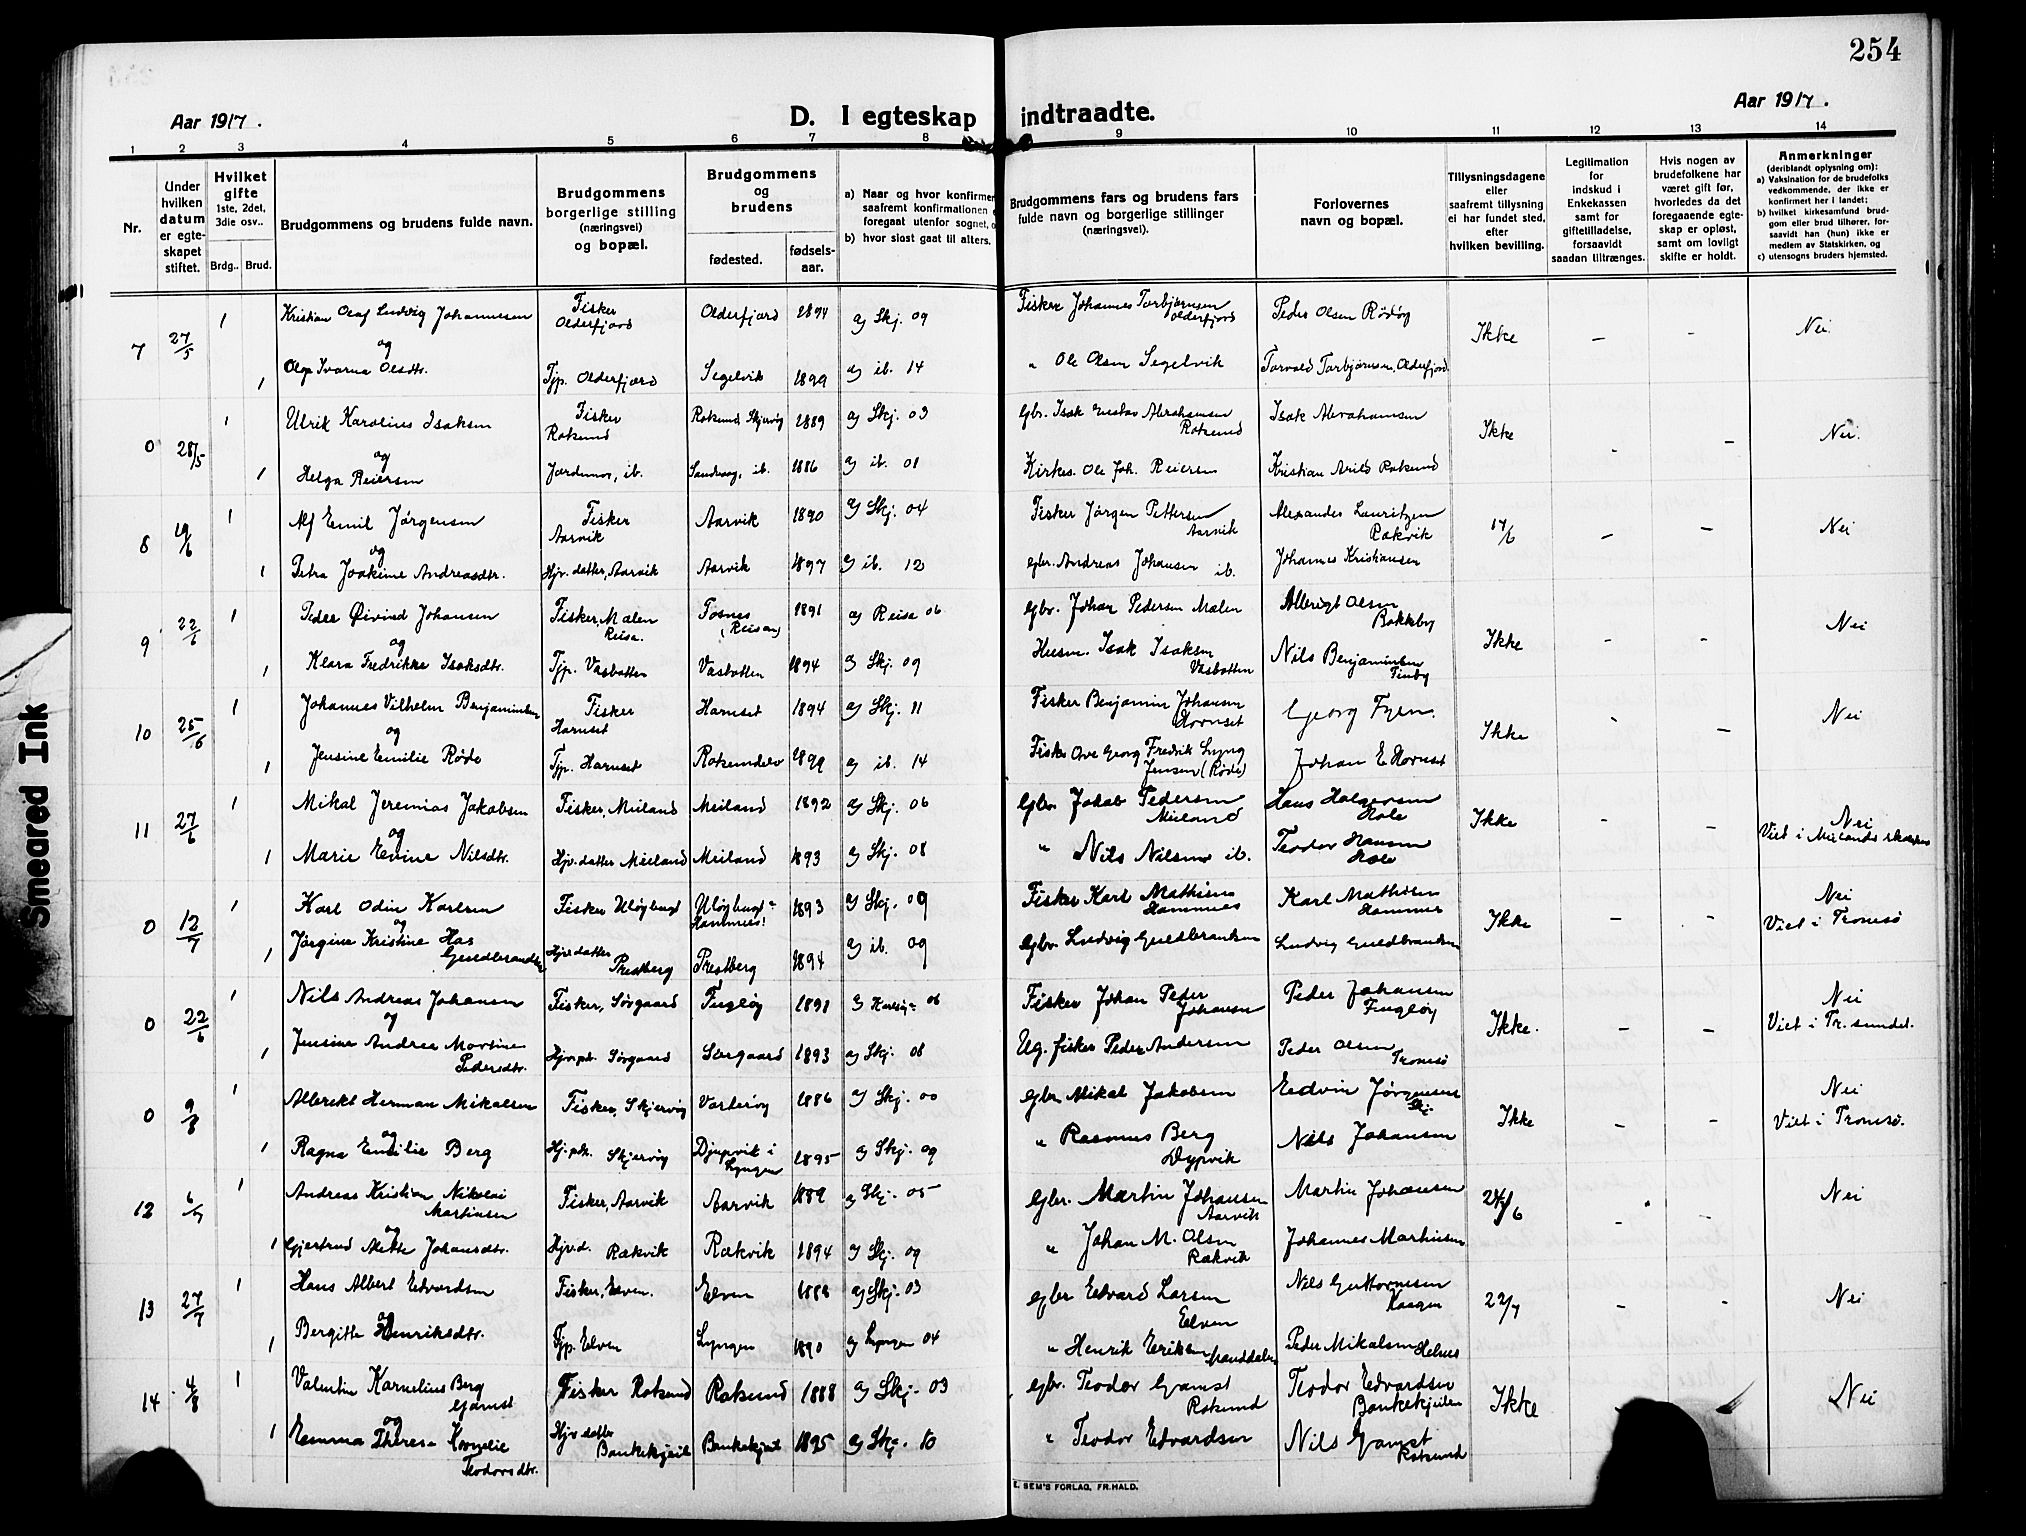 254
Aar 1917.
D. I egteskap indtraadte.
Aar 1917.
1 2 3 4 5 6 7 8 9 10 11 12 13 14
Nr.
Under hvilken datum er egteskapet stiftet.
Hvilket gifte 1ste, 2det, 3die osv..
Brdg.. Brud.
Brudgommens og brudens fulde navn.
Brudgommens borgerlige stilling (næringsvei) og bopæl.
Brudgommens og brudens
fødested. fødselsaar.
a) Naar og hvor konfirmer
saafremt konfirmationen
foregaat utenfor sognet,
b) hvor sidst gaat til alters.
Brudgommens fars og brudens fars fulde navn og borgerlige stillinger (næringsvei).
Forlovernes navn og bopæl.
Tillysningsdagene eller saafremt tillysning ei har fundet sted, efter hvilken bevilling.
Legitimation for indskud i Enkekassen samt for giftetilladelse, forsaavidt saadan tiltrænges.
Hvis nogen av brudefolkene har været gift før, hvorledes da det foregaaende egteskap er opløst, samt om lovligt skifte er holdt.
Anmerkninger (deriblandt oplysning om): a) Vaksination for de brudefolks vedkommende, der ikke er konfirmert her i landet; b) hvilket kirkesamfund brudgom eller brud tilhører, forsaavidt han (hun) ikke er medlem av Statskirken, og c) utensogns bruders hjemsted.
7 27/5 1 Kristian Olaf Ludvig Johannesen Fisker Olderfjord Olderfjord 1894 a) Skj. 09 Fisker Johannes Torbjørnsen Olderfjord Peder Olsen Rödøy Ikke – – Nei
og
1 Olga Ivarna Olsdtr. Tjp. Olderfjord Segelvik 1899 a) ib. 14 " Ole Olsen Segelvik Torvald Torbjørnsen, Olderfjord
0 28/5 1 Ulrik Karolius Isaksen Fisker Rotsund Rotsund, Skjervøy 1889 a) Skj. 03 Gbr. Isak Gustav Abrahamsen Rotsund Isak Abrahamsen Ikke – – Nei.
og
1 Helga Reiersen Jordemor, ib. Sandvaag, ib. 1886 a) ib. 01 Kirkes. Ole Joh. Reiersen Kristian Arild Rotsund
8 19/6 1 Alf Emil Jørgensen Fisker Aarvik Aarvik 1890 a) Skj. 04 Fisker Jørgen Pettersen Aarvik Alexander Lauritzen Rakvik 17/6 – – Nei
og
1 Petra Joakime Andreasdtr. Hjv. datter, Aarvik Aarvik 1897 a) ib. 12 Gbr. Andreas Johansen ib. Johannes Kristiansen
9 22/6 1 Peder Øivind Johansen Fisker, Malen Reisa. Tosnes (Reisen) 1891 a) Reisa 06 Gbr. Johan Pedersen Malen Albrigt Olsen Bakkeby Ikke – – Nei
og
1 Klara Fredrikke Isaksdtr. Tjp. Vasbotten Vasbotten 1894 a) Skj. 09 Husm. Isak Isaksen Vasbotten Nils Benjaminsen
10 25/6 1 Johannes Vilhelm Benjaminsen Fisker Havnset Havnset 1894 a) Skj. 11 Fisker Benjamin Johansen Havnset Georg Fyen. Ikke – – Nei
og
1 Jensine Emilie Røde Tjp. Havnset Rotsundelv 1899 a) ib. 14 Fisker Ove Georg Fredrik Lyng Jensen (Røde) Johan E Havnset
11 27/6 1 Mikal Jeremias Jakobsen Fisker, Meiland Meiland 1892 a) Skj. 06 Gbr. Jakob Pedersen Meiland Hans Holgersen Hole Ikke – – Nei Viet i Meilands skolehus
og
1 Marie Evine Nilsdtr. Hjv. datter Meiland Meiland 1893 a) Skj. 08 " Nils Nilsen ib. Teodor Hansen Hole
0 12/7 1 Karl Odin Karlsen Fisker Uløybugt Uløybugt = Hamnnes! 1893 a) Skj. 09 Fisker Karl Mathisen Hamnnes Karl Mathisen Hamnnes Ikke – – Nei Viet i Tromsø
og
1 Jørgine Kristine Has Guldbrandsen Hjv. datter Prestberg Prestberg 1894 a) ib. 09 Gbr. Ludvig Guldbrandsen Ludvig Guldbrandsen
0 22/6 1 Nils Andreas Johansen Fisker, Sørgaard Fugløy 1891 a) Karlsøy= 06 Fisker Johan Peder Johansen Peder Johansen Fugløy Ikke. – – Nei Viet i Tr. sundet.
og
1 Jensine Andrea Martine Pedersdtr. Hjv.pk. Sørgaard Sørgaard 1893 a) Skj. 08 Ug. fisker Peder Andersen Peder Olsen Tromsø
0 9/8 1 Albrekt Herman Mikalsen Fisker, Skjervøy Vorterøy 1886 a) Skj. 00 Gbr. Mikal Jakobsen Edvin Jørgensen Skj. Ikke – – Nei Viet i Tromsø.
og
1 Ragna Emilie Berg Hj.pk. Skjervøy Djupvik i Lyngen 1895 a) Skj. 09 " Rasmus Berg Dypvik Nils Johansen
12 6/7 1 Andreas Kristian Nikolai Martinsen Fisker, Aarvik Aarvik 1889 a) Skj. 05 Gbr. Martin Johansen Aarvik Martin Johansen 24/6 – – Nei
og
1 Gjertrud Mette Johansdtr. Hjv.d. Rakvik Rakvik 1894 a) Skj. 09 " Johan M. Olsen Rakvik Johannes Martinsen
13 27/7 1 Hans Albert Edvardsen Fisker, Elven. Elven 1888 a) Skj. 03 Gbr Edvard Larsen Elven Nils Guttormsen Kaagen 22/7 – – Nei
og
1 Bergitte Henriksdtr. Tjp. Elven Lyngen 1890 a) Lyngen 04 " Henrik Eriksen Manddalen Peder Mikalsen Helnes
14 4/8 1 Valentin Kornelius Berg Gamst Fisker Rotsund Rotsund 1888 a) Skj. 03 Gbr. Teodor Gamst Rotsund Teodor Edvardsen Bankekjeilen Ikke Nei
og
1 Emma Therese Kornelie Teodorsdtr. Hjv datter Bankekjeil Bankekjeil 1895 a) Skj. 10 " Teodor Edvardsen Nils Gamst Rotsund
E. SEM'S FORLAG, FR.HALD.
Smeared Ink